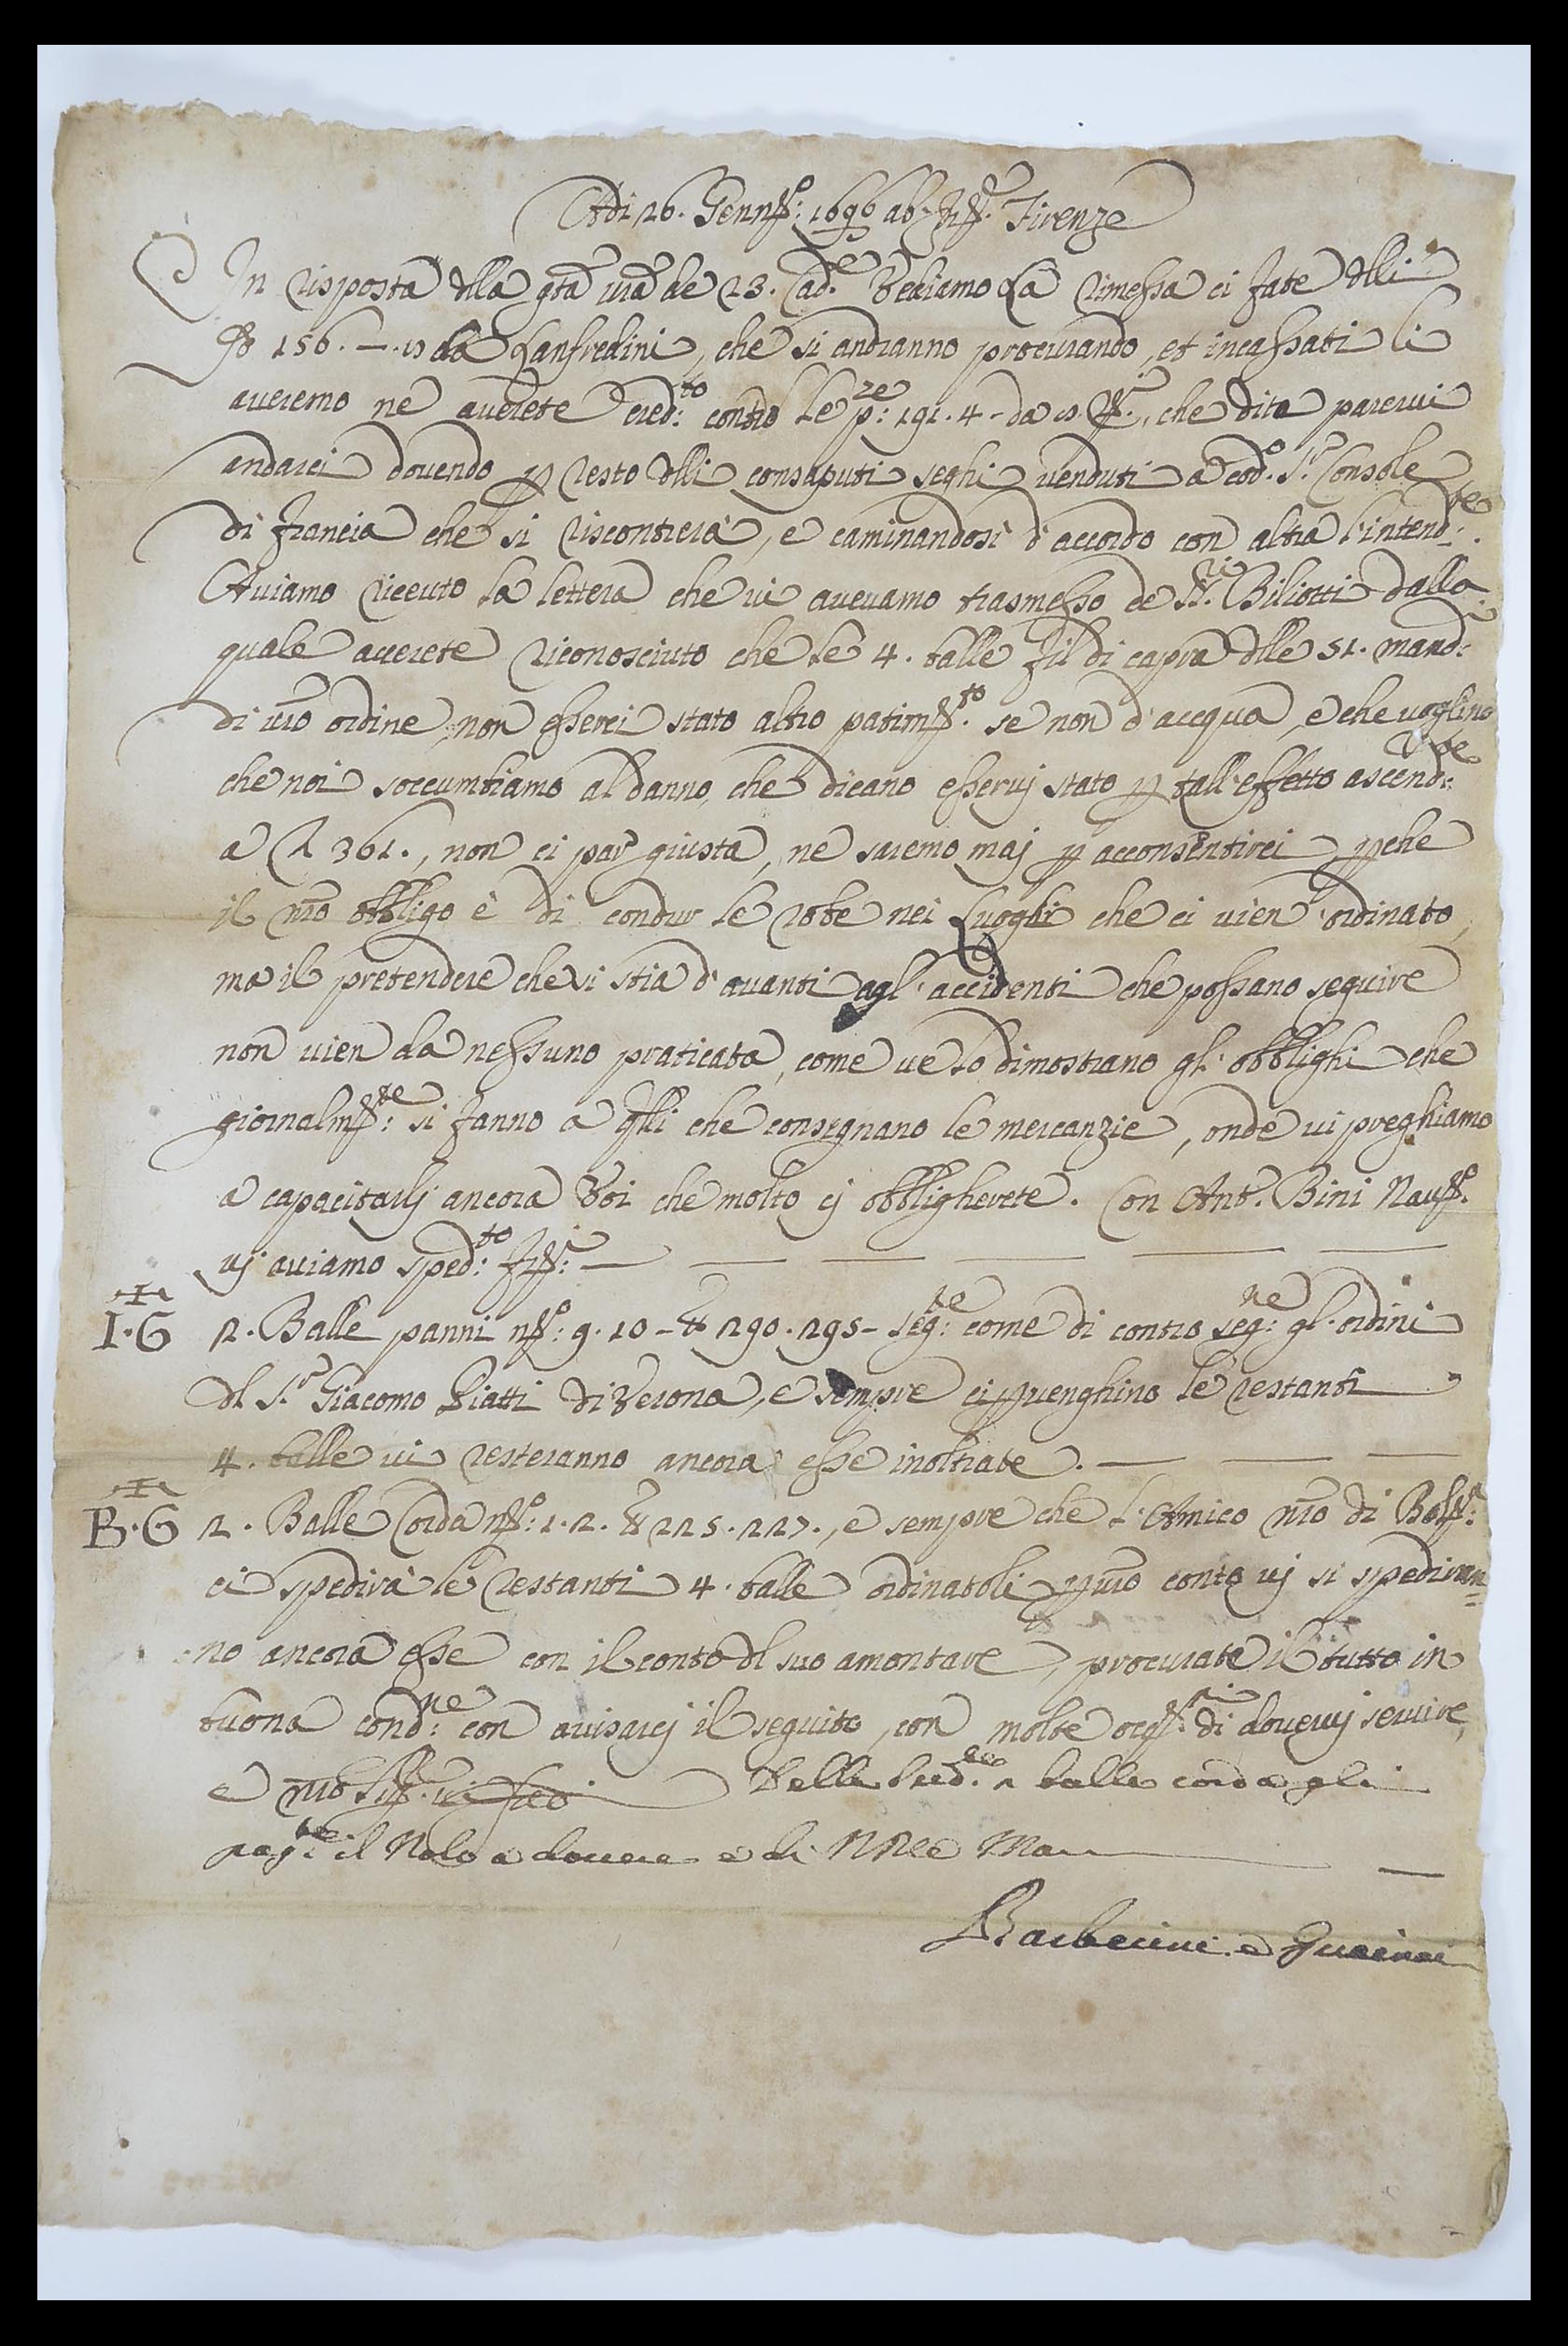 Adi 26. Genn:º 1696 ab Firenze
In risposta dlla grã vrã de 23. Cad.e Vediamo La rimessa ci fate dlli
156. —. 10 da Lanfredini, che si andranno procurando, et incassati li
averemo ne averete cred:to contro le p:re 191. 4 - da che dite parervi
andarci dovendo p resto dlli consaputi seghi venduti a cod.o S.r Console
di Francia che si riscontrerà, e caminandosi d'accordo con altra l'intend:te.
Aviamo riceuto la lettera che vi avevamo trasmesso de SS.ri Biliotti dalla
quale averete riconosciuto che le 4. balle fil di capra dlle 51. mand:
di vrõ ordine, non esserci stato altro patim.to se non d'acqua, e che voglino
che noi soccumbiamo al danno, che dicano esservj stato p tall'effetto ascend:te
a 361., non ci par giusta, ne saremo maj p acconsentirci pche
il nrõ obbligo è di condur le robe nei Luoghi che ci vien ordinato,
ma il pretendere che si stia d'avanti agl'accidenti che possano seguire
non vien da nessuno praticata, come ve lo dimostrano gl'obblighi che
giornalm:te si fanno a qlli che consegnano le mercanzie, onde vi preghiamo
a capacitarlj ancora Voi che molto cj obbligherete. Con Ant.o Bini Nav.o
vj aviamo sped:to
I·G 2. Balle panni n:º 9. 10 - & 290. 295 - seg:te come di contro seg:ne gl'ordini
dl S.r Giacomo di Verona, e sempre ci pvenghino le restanti
4. balle vi resteranno ancora esse inoltrate.
B·G 2. Balle Corda n:º 1. 2. & 225. 227., e sempre che l'Amico nrõ di Bol:a
ci spedirà le restanti 4. balle ordinatoli p vrõ conto vj si spediran=
no ancora esse con il conto dl suo amontare, procurate il tutto in
buona cond:ne con avisarcj il seguito, con molte occ:ni di dovervj servire,
e nrõ Delle sud.e 2 balle corda gli
pag:te il Nolo a dovere e di
Barberini e Guerini